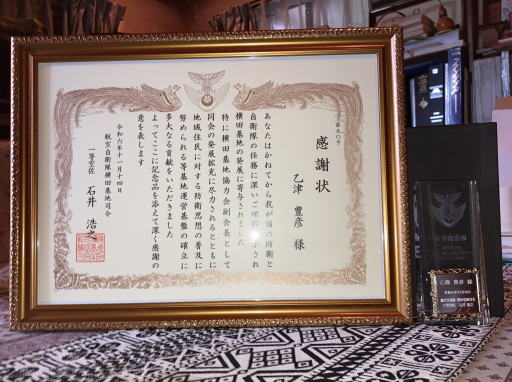 感謝状
乙津 豊彦 様
あなたはかねてから我が国の防衛と
自衛隊の任務に深いご理解を示され
横田基地の発展に寄与されました
特に横田基地協力会副会長として
同会の発展拡充に尽力されるとともに
地域住民に対する防衛思想の普及に
努められる等基地運営基盤の確立に
多大なる貢献をいただきました
よってここに記念品を添えて深く感謝の
意を表します
令和六年十一月十四日
航空自衛隊横田基地司令
一等空佐 石井 浩之
航空自衛隊
乙津 豊彦 様